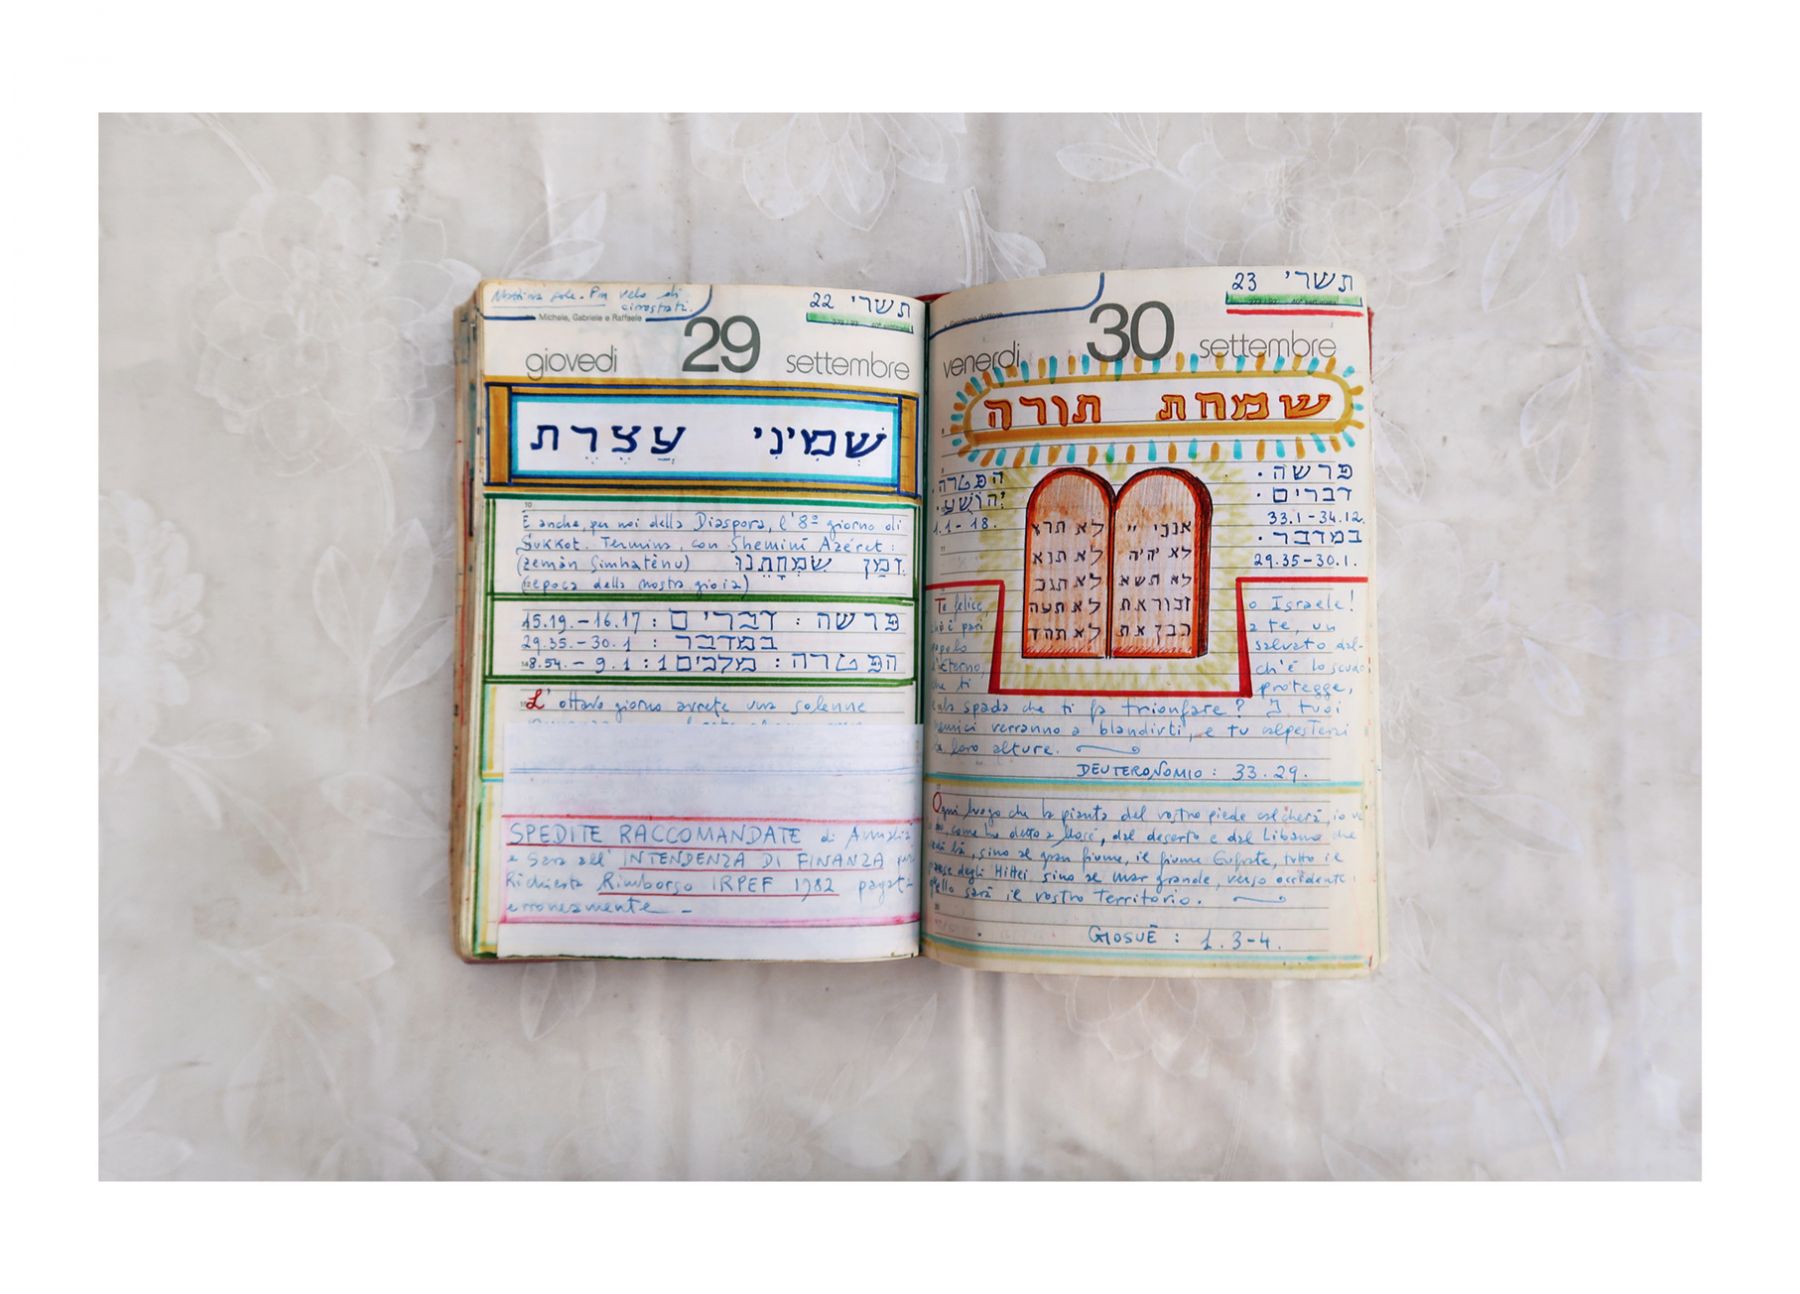 Mattina sole. Poi velo di
cirrostrati.
Michele, Gabriele e Raffaele
22 תשרי
giovedì 29 settembre
שְׁמִינִי עֲצֶרֶת
È anche, per noi della Diaspora, l'8º giorno di
Sukkot. Termina, con Sheminì Azéret:
(zemàn Simhatènu) זְמַן שִׂמְחָתֵנוּ
(epoca della nostra gioia)
פרשה: דברים: 15.19.-16.17
במדבר: 29.35-30.1
הפטרה: מלכים 1: 8.54.-9.1
L'ottavo giorno avrete una solenne
SPEDITE RACCOMANDATE di
e Sara all'INTENDENZA DI FINANZA per
Richiesta Rimborso IRPEF 1982 pagata
erroneamente -
23 תשרי
venerdì 30 settembre
שמחת תורה
הפטרה.
יְהוֹשֻׁעַ.
1.1-18.
פרשה.
דברים.
33.1-34.12.
במדבר.
29.35-30.1.
אנכי יי לא תרצ
לא יהיה לא תנא
לא תשא לא תגנ
זכור את לא תענה
כבד את לא תחמד
Te felice, o Israele!
chi è pari a te, un
popolo salvato dal-
l'Eterno, ch'è lo scudo
che ti protegge,
e la spada che ti fa trionfare? I tuoi
nemici verranno a blandirti, e tu calpesterai
le loro alture.
DEUTERONOMIO: 33.29.
Ogni luogo che la pianta del vostro piede calcherà, io ve
lo do, come ho detto a Mosè, dal deserto e dal Libano che
vedi là, sino al gran fiume, il fiume Eufrate, tutto il
paese degli Hittei sino al mar grande, verso occidente:
quello sarà il vostro territorio.
GIOSUÈ: 1.3-4.